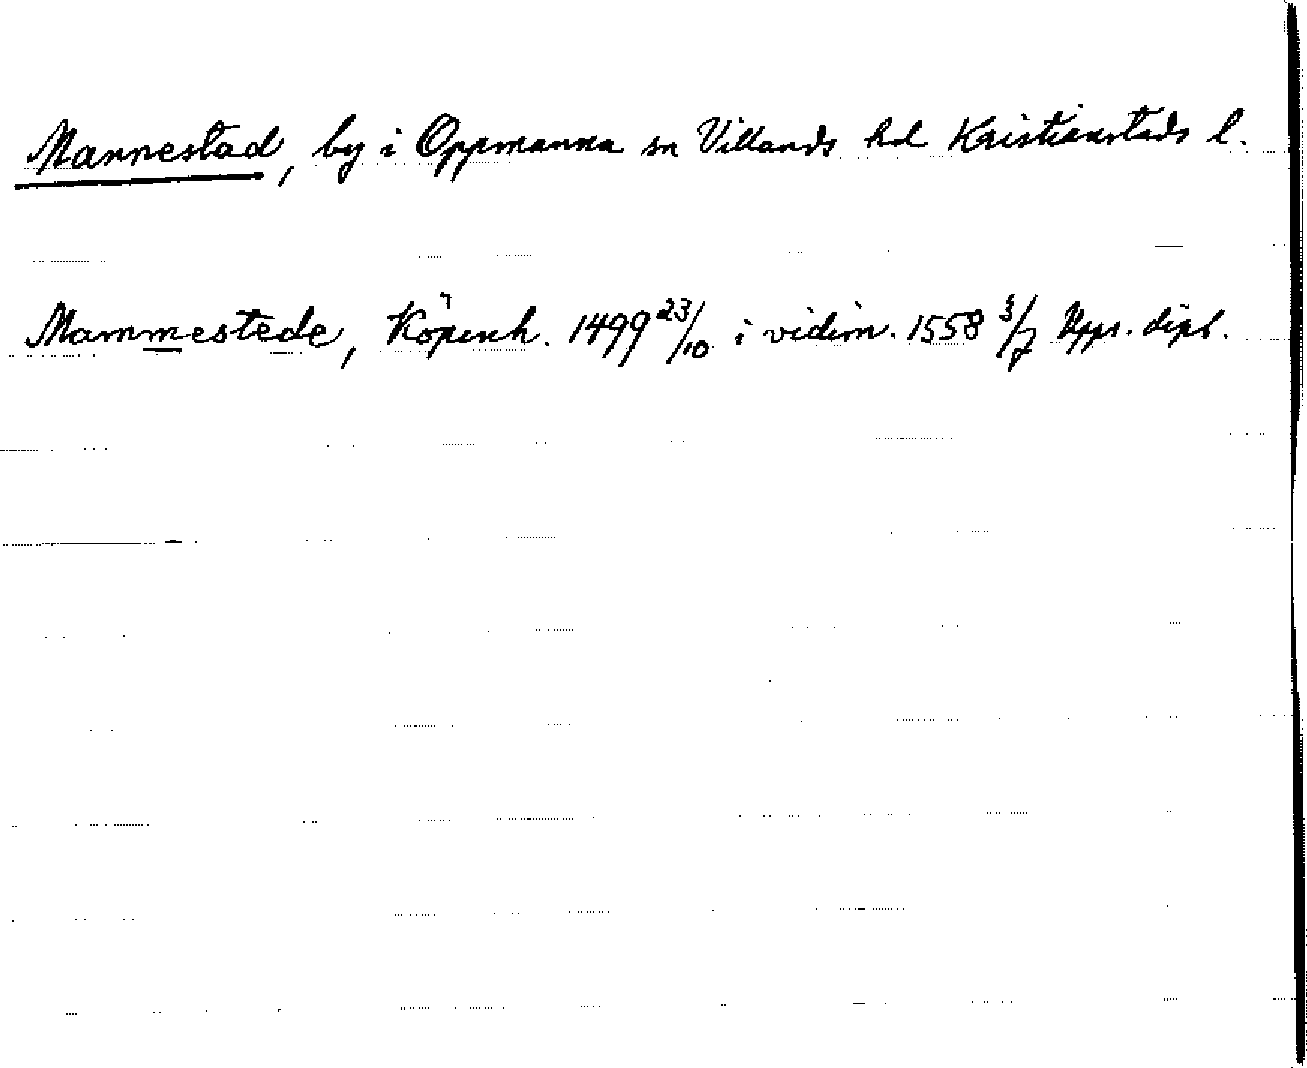 Mannestad, by i Oppmanna sn Villands hd Kristianstads l.
Mammestede, Köpenh. 1499 23/10 i vidim. 1558 3/7 Upps. dipl.